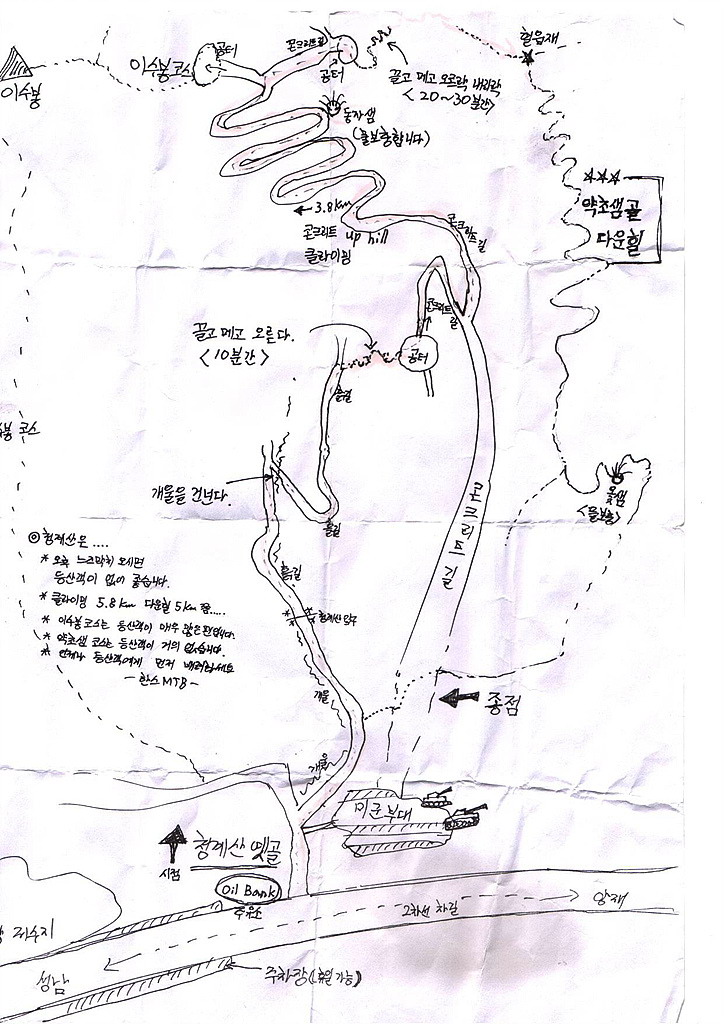 공터
콘크리트길
혈읍재
이수봉코스
공터
이수봉
끌고 메고 오르락 내리락
<20~30분간>
동자샘
(물보충합니다)
☆☆☆
약초샘골
다운힐
← 3.8km
콘크리트 up hill
클라이밍
콘크리트길
콘크리트
길
끌고 메고 오른다.
<10분간>
공터
흙길
봉 코스
개울을 건넌다.
흙길
옻샘
<물보충>
콘크리트 길
◎ 청계산은 ....
* 오후 느즈막히 오시면
등산객이 없어 좋습니다.
* 클라이밍 5.8km 다운힐 5km 쯤.....
* 이수봉코스는 등산객이 매우 많은편입니다.
* 약초샘 코스는 등산객이 거의 없습니다.
* 언제나 등산객에게 먼저 배려하세요
- 한스 MTB -
흙길
청계산 입구
개울
종점
개울
미군부대
청계산 옛골
시점
Oil Bank
주유소
2차선 차길
양재
저수지
성남
주차장(휴일 가능)